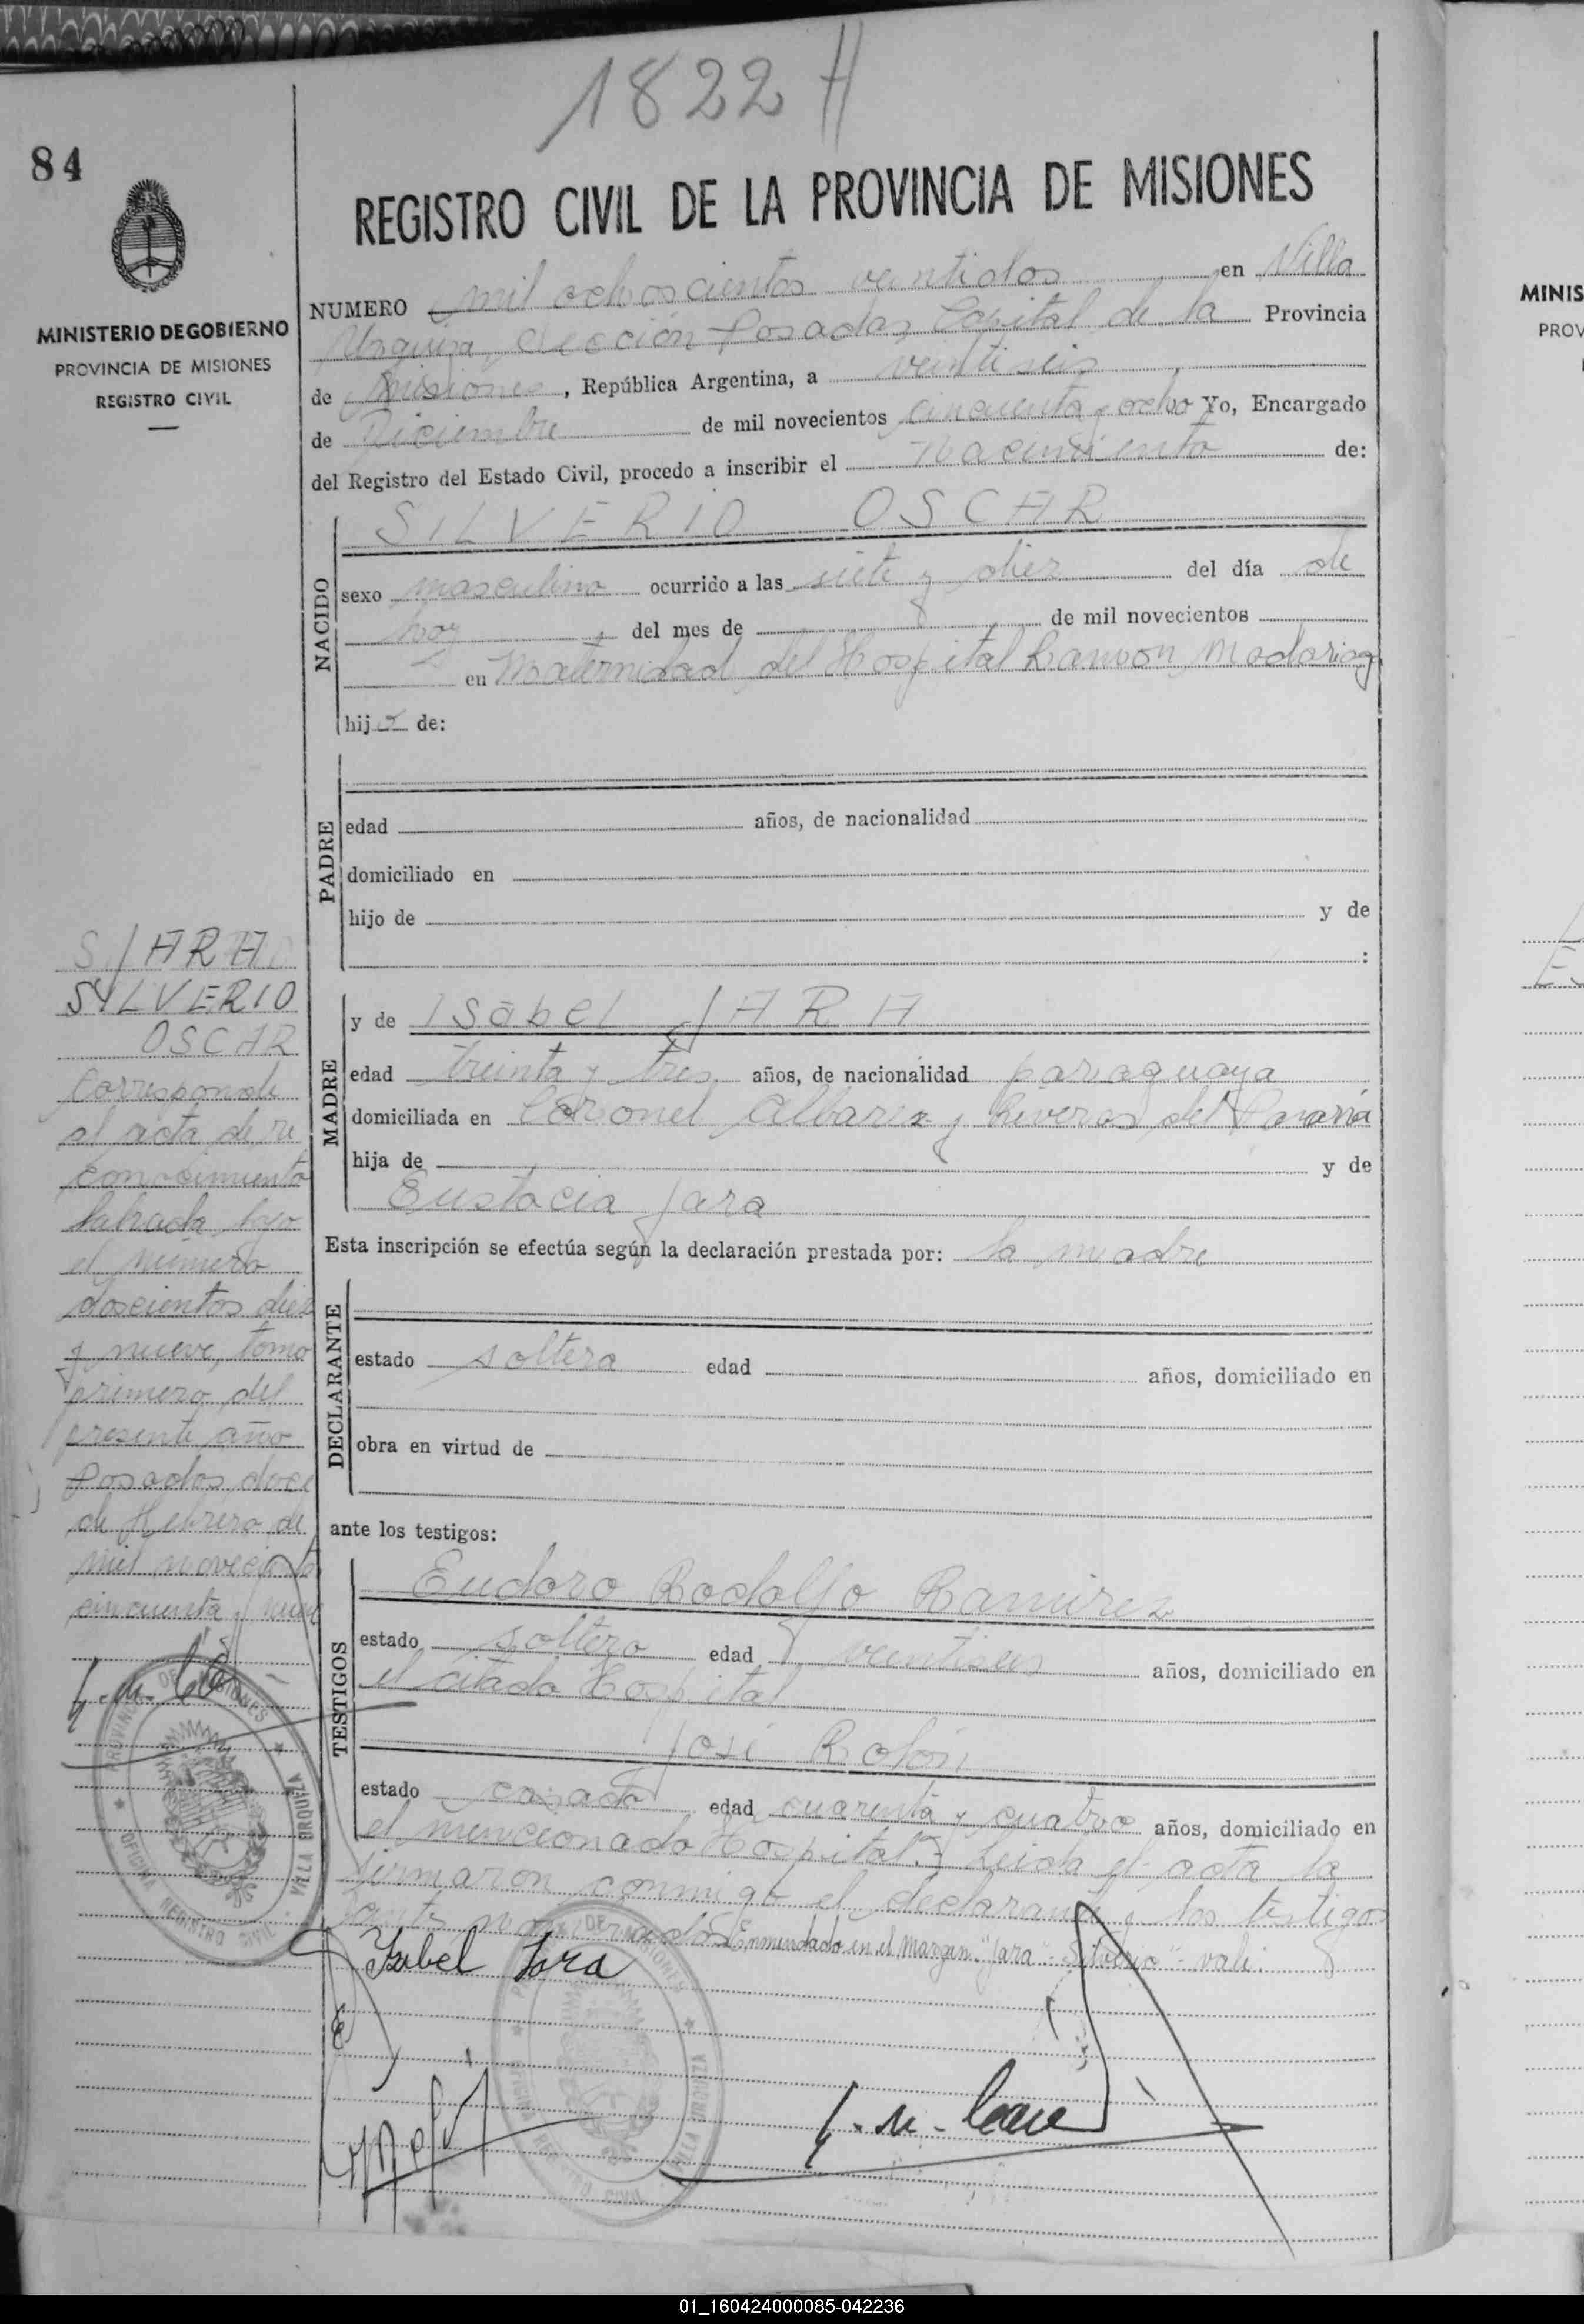 1822 H
84
REGISTRO CIVIL DE LA PROVINCIA DE MISIONES
MINISTERIO DE GOBIERNO
PROVINCIA DE MISIONES
REGISTRO CIVIL
NUMERO mil ochoscientos veintidos en Villa
Urquiza, Sección Posadas Capital de la Provincia
de Misiones, República Argentina, a veintiseis
de Diciembre de mil novecientos cincuenta y ocho Yo, Encargado
del Registro del Estado Civil, procedo a inscribir el Nacimiento de:
NACIDO
SILVERIO OSCAR
sexo masculino ocurrido a las siete y diez del día de
hoy del mes de de mil novecientos
en Maternidad del Hospital Ramon Madariaga
hijo de:
PADRE
edad años, de nacionalidad
domiciliado en
hijo de y de
:
MADRE
y de Isabel JARA
edad treinta y tres años, de nacionalidad paraguaya
domiciliada en Coronel Albarez y Riveras del Paraná
hija de y de
Eustacia Jara
Esta inscripción se efectúa según la declaración prestada por: la madre
DECLARANTE
estado soltera edad años, domiciliado en
obra en virtud de
ante los testigos:
TESTIGOS
Eudoro Rodolfo Ramirez
estado soltero edad veintiseis años, domiciliado en
el citado Hospital
José Rolón
estado casado edad cuarenta y cuatro años, domiciliado en
el mencionado Hospital. Leida el acta la
firmaron conmigo el declarante y los testigos
Enmendado en el margen: "Jara" - Silverio" - vale.
Isabel Jara
JARA
SILVERIO
OSCAR
Corresponde
al acta de re
conocimiento
labrada bajo
el número
doscientos diez
y nueve, tomo
primero del
presente año
Posadas, doce
de Febrero de
mil novecientos
cincuenta y nueve
PROVINCIA DE MISIONES
OFICINA REGISTRO CIVIL
VILLA URQUIZA
PROVINCIA DE MISIONES
OFICINA REGISTRO CIVIL
VILLA URQUIZA
MINIS
PROV
01_160424000085-042236